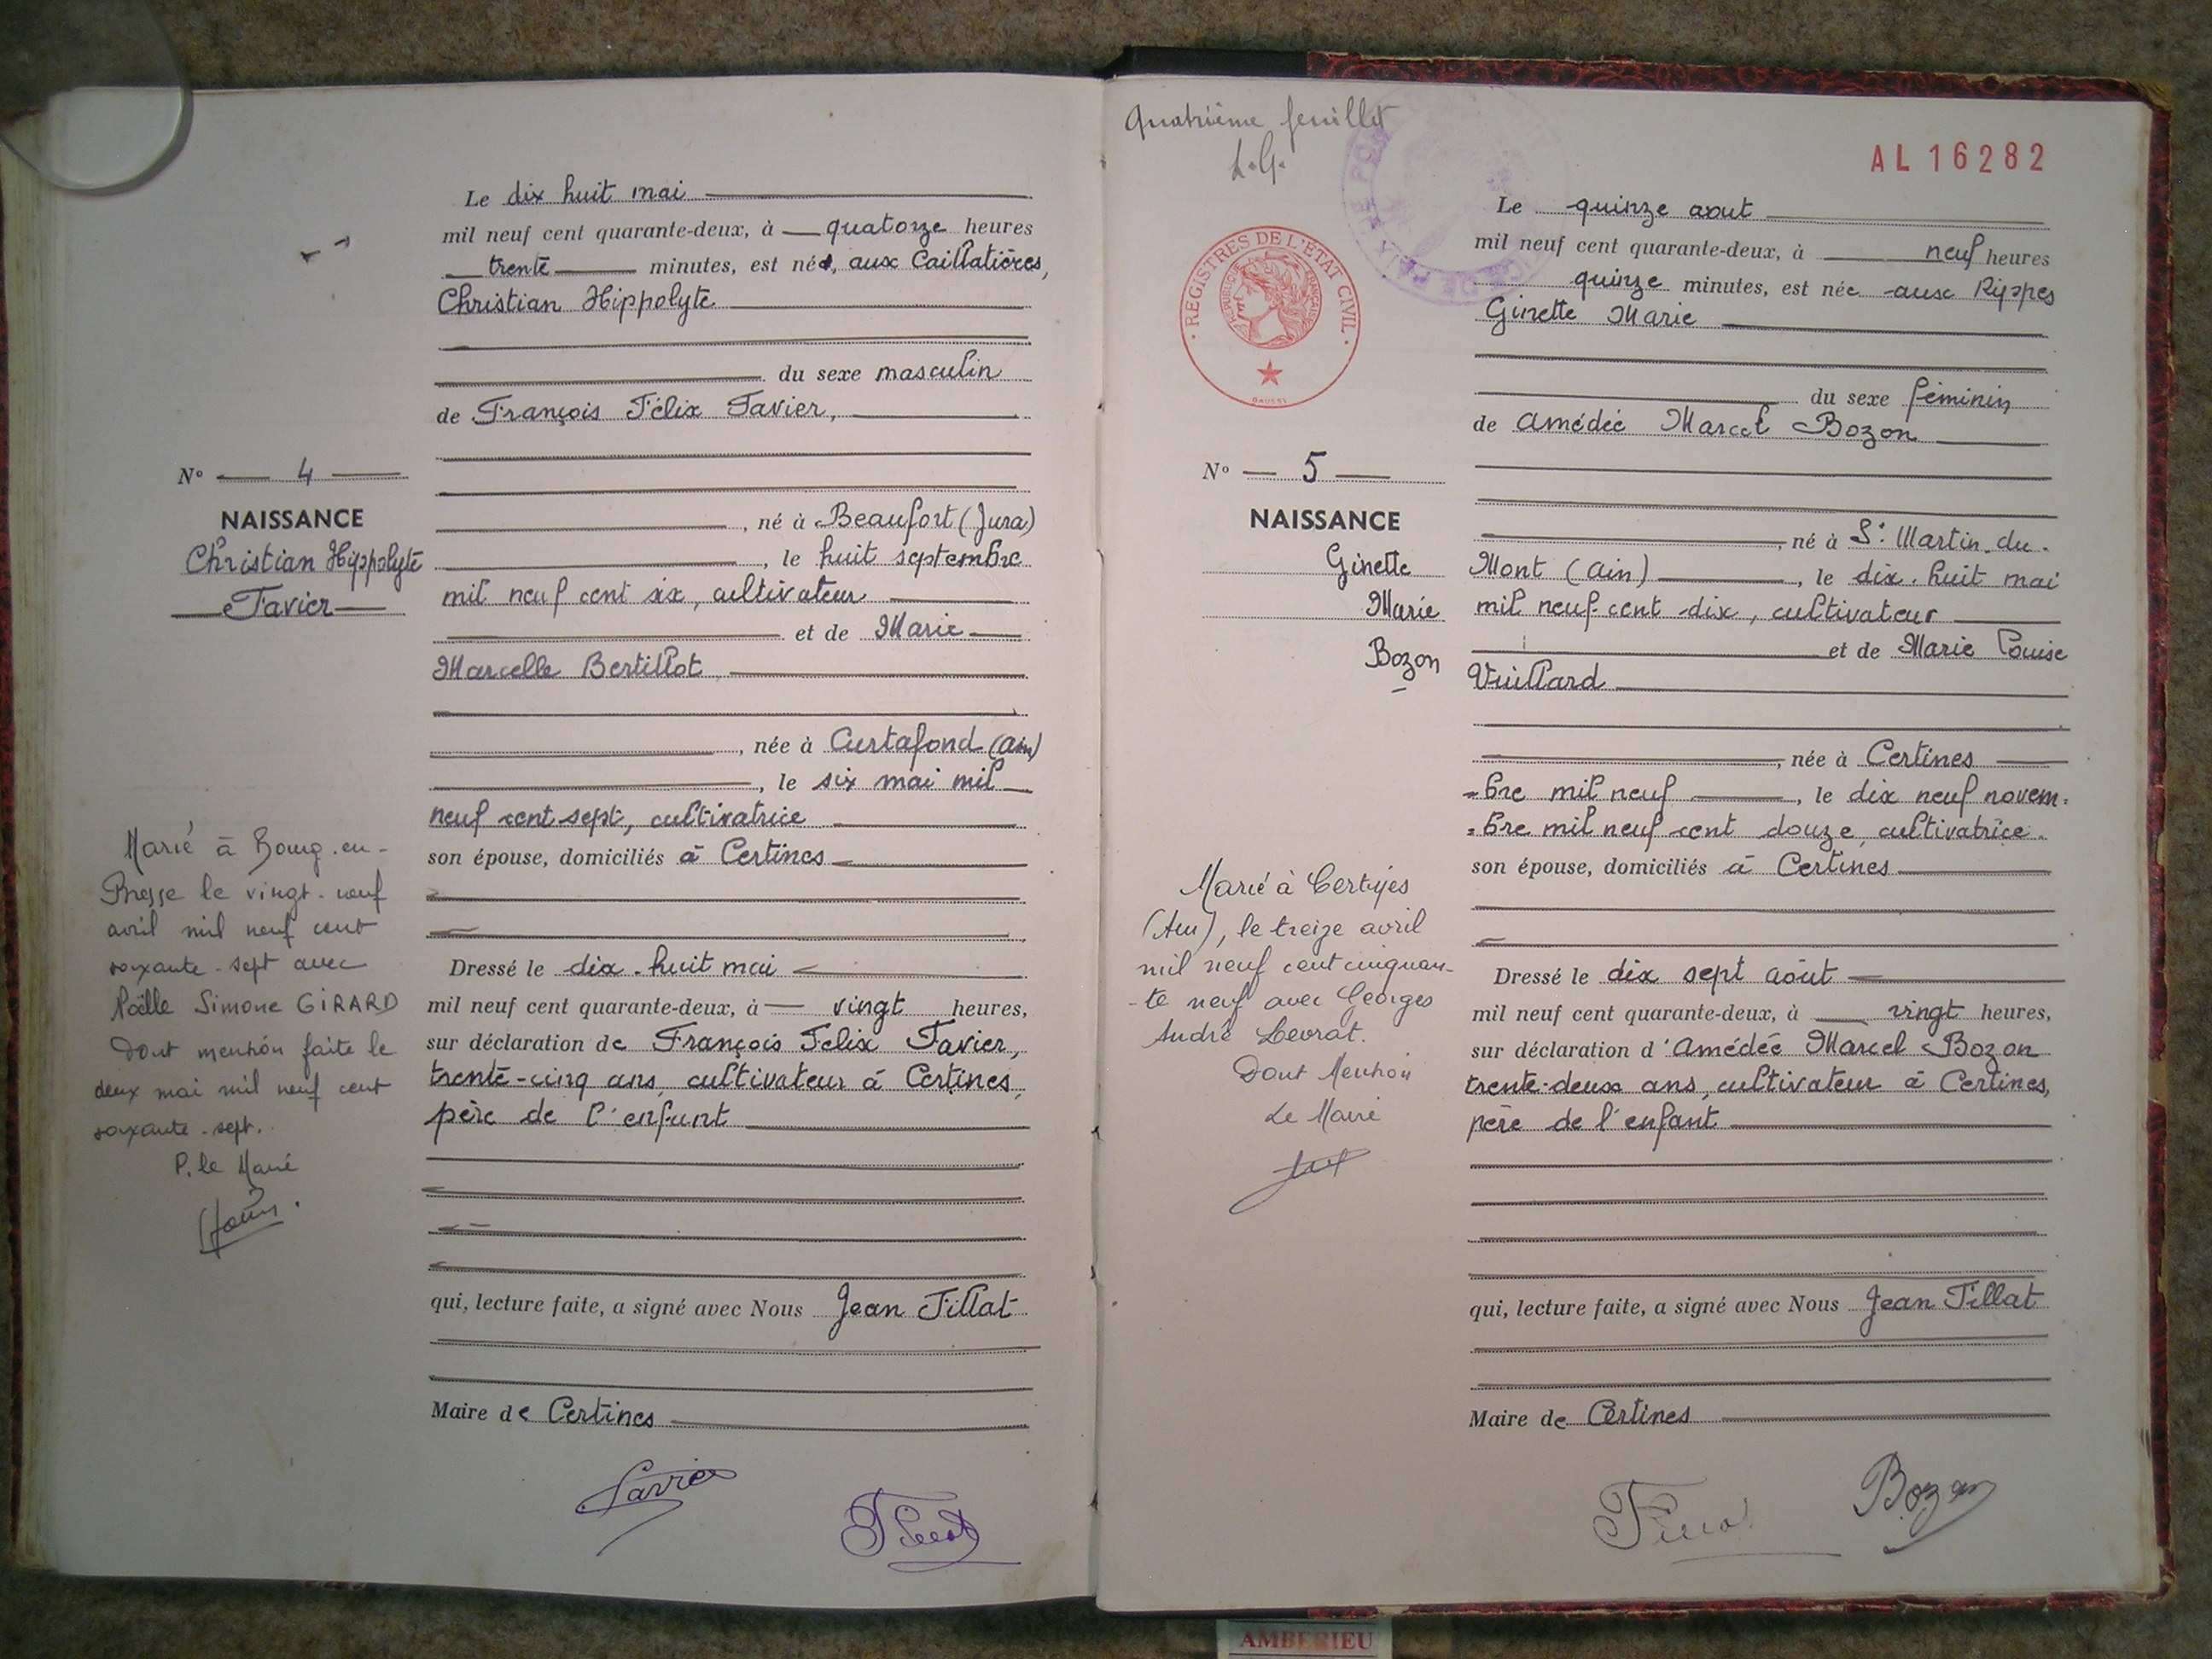 Le dix huit mai
mil neuf cent quarante-deux, à quatorze heures
trente minutes, est né, aux Caillatières,
Christian Hippolyte
du sexe masculin
de François Félix Tavier,
N° 4
NAISSANCE
Christian Hippolyte
Tavier
, né à Beaufort (Jura)
, le huit septembre
mil neuf cent six, cultivateur
et de Marie
Marcelle Bertillot
, née à Curtafond (Ain)
, le six mai mil
neuf cent sept, cultivatrice
son épouse, domiciliés à Certines
Marié à Bourg-en-
Bresse le vingt-neuf
avril mil neuf cent
soixante-sept avec
Noëlle Simone GIRARD
Dont mention faite le
deux mai mil neuf cent
soixante-sept.
P. le Maire
Dressé le dix-huit mai
mil neuf cent quarante-deux, à vingt heures,
sur déclaration de François Félix Tavier,
trente-cinq ans, cultivateur à Certines,
père de l'enfant
qui, lecture faite, a signé avec Nous Jean Tillat
Maire de Certines
Tavier
Quatrième feuillet
L.G.
AL 16282
REGISTRES DE L'ETAT CIVIL
Le quinze aout
mil neuf cent quarante-deux, à neuf heures
quinze minutes, est née aux Rippes
Ginette Marie
du sexe féminin
de Amédée Marcel Bozon
N° 5
NAISSANCE
Ginette
Marie
Bozon
, né à St Martin-du-
Mont (Ain), le dix-huit mai
mil neuf cent dix, cultivateur
et de Marie Louise
Vuillard
, née à Certines
=bre mil neuf, le dix neuf novem=
=bre mil neuf cent douze, cultivatrice
son épouse, domiciliés à Certines
Marié à Certines
(Ain), le treize avril
mil neuf cent cinquan-
-te neuf avec Georges
André Levrat.
Dont Mention
Le Maire
Dressé le dix sept août
mil neuf cent quarante-deux, à vingt heures,
sur déclaration d'Amédée Marcel Bozon
trente-deux ans, cultivateur à Certines,
père de l'enfant
qui, lecture faite, a signé avec Nous Jean Tillat
Maire de Certines
Bozon
AMBERIEU